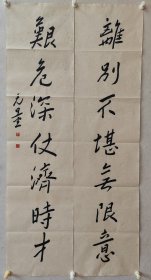 離別不堪無限意
艱危深仗濟時才